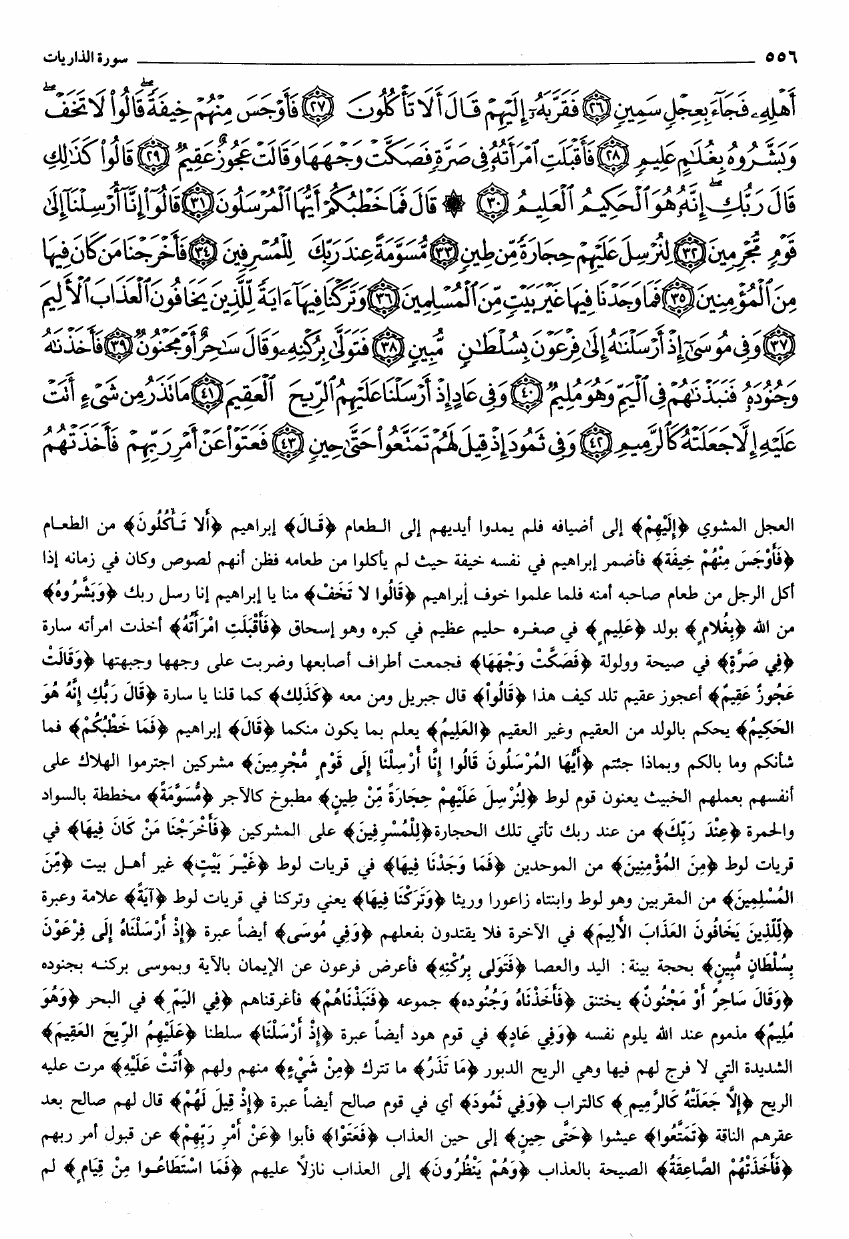 ٥٥٦ سورة الذاريات
أَهْلِهِۦ فَجَآءَ بِعِجْلٍ سَمِينٍ ﴿٢٦﴾ فَقَرَّبَهُۥٓ إِلَيْهِمْ قَالَ أَلَا تَأْكُلُونَ ﴿٢٧﴾ فَأَوْجَسَ مِنْهُمْ خِيفَةً ۖ قَالُوا۟ لَا تَخَفْ ۖ
وَبَشَّرُوهُ بِغُلَٰمٍ عَلِيمٍ ﴿٢٨﴾ فَأَقْبَلَتِ ٱمْرَأَتُهُۥ فِى صَرَّةٍ فَصَكَّتْ وَجْهَهَا وَقَالَتْ عَجُوزٌ عَقِيمٌ ﴿٢٩﴾ قَالُوا۟ كَذَٰلِكِ
قَالَ رَبُّكِ ۖ إِنَّهُۥ هُوَ ٱلْحَكِيمُ ٱلْعَلِيمُ ﴿٣٠﴾ ۞ قَالَ فَمَا خَطْبُكُمْ أَيُّهَا ٱلْمُرْسَلُونَ ﴿٣١﴾ قَالُوٓا۟ إِنَّآ أُرْسِلْنَآ إِلَىٰ
قَوْمٍ مُّجْرِمِينَ ﴿٣٢﴾ لِنُرْسِلَ عَلَيْهِمْ حِجَارَةً مِّن طِينٍ ﴿٣٣﴾ مُّسَوَّمَةً عِندَ رَبِّكَ لِلْمُسْرِفِينَ ﴿٣٤﴾ فَأَخْرَجْنَا مَن كَانَ فِيهَا
مِنَ ٱلْمُؤْمِنِينَ ﴿٣٥﴾ فَمَا وَجَدْنَا فِيهَا غَيْرَ بَيْتٍ مِّنَ ٱلْمُسْلِمِينَ ﴿٣٦﴾ وَتَرَكْنَا فِيهَآ ءَايَةً لِّلَّذِينَ يَخَافُونَ ٱلْعَذَابَ ٱلْأَلِيمَ
﴿٣٧﴾ وَفِى مُوسَىٰٓ إِذْ أَرْسَلْنَٰهُ إِلَىٰ فِرْعَوْنَ بِسُلْطَٰنٍ مُّبِينٍ ﴿٣٨﴾ فَتَوَلَّىٰ بِرُكْنِهِۦ وَقَالَ سَٰحِرٌ أَوْ مَجْنُونٌ ﴿٣٩﴾ فَأَخَذْنَٰهُ
وَجُنُودَهُۥ فَنَبَذْنَٰهُمْ فِى ٱلْيَمِّ وَهُوَ مُلِيمٌ ﴿٤٠﴾ وَفِى عَادٍ إِذْ أَرْسَلْنَا عَلَيْهِمُ ٱلرِّيحَ ٱلْعَقِيمَ ﴿٤١﴾ مَا تَذَرُ مِن شَىْءٍ أَتَتْ
عَلَيْهِ إِلَّا جَعَلَتْهُ كَٱلرَّمِيمِ ﴿٤٢﴾ وَفِى ثَمُودَ إِذْ قِيلَ لَهُمْ تَمَتَّعُوا۟ حَتَّىٰ حِينٍ ﴿٤٣﴾ فَعَتَوْا۟ عَنْ أَمْرِ رَبِّهِمْ فَأَخَذَتْهُمُ
العجل المشوي ﴿إِلَيْهِمْ﴾ إلى أضيافه فلم يمدوا أيديهم إلى الطعام ﴿قَالَ﴾ إبراهيم ﴿أَلا تَأْكُلُونَ﴾ من الطعام
﴿فَأَوْجَسَ مِنْهُمْ خِيفَة﴾ فأضمر إبراهيم في نفسه خيفة حيث لم يأكلوا من طعامه فظن أنهم لصوص وكان في زمانه إذا
أكل الرجل من طعام صاحبه أمنه فلما علموا خوف إبراهيم ﴿قَالُوا لا تَخَفْ﴾ منا يا إبراهيم إنا رسل ربك ﴿وَبَشَّرُوهُ﴾
من الله ﴿بِغُلامٍ﴾ بولد ﴿عَلِيمٍ﴾ في صغره حليم عظيم في كبره وهو إسحاق ﴿فَأَقْبَلَتِ امْرَأَتُهُ﴾ أخذت امرأته سارة
﴿فِي صَرَّةٍ﴾ في صيحة وولولة ﴿فَصَكَّتْ وَجْهَهَا﴾ فجمعت أطراف أصابعها وضربت على وجهها وجبهتها ﴿وَقَالَتْ
عَجُوزٌ عَقِيمٌ﴾ أعجوز عقيم تلد كيف هذا ﴿قَالُواْ﴾ قال جبريل ومن معه ﴿كَذَلِكِ﴾ كما قلنا يا سارة ﴿قَالَ رَبُّكِ إِنَّهُ هُوَ
الحَكِيمُ﴾ يحكم بالولد من العقيم وغير العقيم ﴿العَلِيمُ﴾ يعلم بما يكون منكما ﴿قَالَ﴾ إبراهيم ﴿فَمَا خَطْبُكُمْ﴾ فما
شأنكم وما بالكم وبماذا جئتم ﴿أَيُّهَا المُرْسَلُونَ قَالُوا إِنَّا أُرْسِلْنَا إِلَى قَوْمٍ مُّجْرِمِينَ﴾ مشركين اجترموا الهلاك على
أنفسهم بعملهم الخبيث يعنون قوم لوط ﴿لِنُرْسِلَ عَلَيْهِمْ حِجَارَةً مِّنْ طِينٍ﴾ مطبوخ كالآجر ﴿مُسَوَّمَةً﴾ مخططة بالسواد
والحمرة ﴿عِنْدَ رَبِّكَ﴾ من عند ربك تأتي تلك الحجارة ﴿لِلْمُسْرِفِينَ﴾ على المشركين ﴿فَأَخْرَجْنَا مَنْ كَانَ فِيهَا﴾ في
قريات لوط ﴿مِنَ المُؤْمِنِينَ﴾ من الموحدين ﴿فَمَا وَجَدْنَا فِيهَا﴾ في قريات لوط ﴿غَيْرَ بَيْتٍ﴾ غير أهل بيت ﴿مِّنَ
المُسْلِمِينَ﴾ من المقربين وهو لوط وابنتاه زاعورا وريثا ﴿وَتَرَكْنَا فِيهَا﴾ يعني وتركنا في قريات لوط ﴿آيَةً﴾ علامة وعبرة
﴿لِلَّذِينَ يَخَافُونَ العَذَابَ الأَلِيمَ﴾ في الآخرة فلا يقتدون بفعلهم ﴿وَفِي مُوسَى﴾ أيضاً عبرة ﴿إِذْ أَرْسَلْنَاهُ إِلَى فِرْعَوْنَ
بِسُلْطَانٍ مُّبِينٍ﴾ بحجة بينة: اليد والعصا ﴿فَتَوَلى بِرُكْنِهِ﴾ فأعرض فرعون عن الإيمان بالآية وبموسى بركنه بجنوده
﴿وَقَالَ سَاحِرٌ أَوْ مَجْنُونٌ﴾ يختنق ﴿فَأَخَذْنَاهُ وَجُنُوده﴾ جموعه ﴿فَنَبَذْنَاهُمْ﴾ فأغرقناهم ﴿فِي اليَمِّ﴾ في البحر ﴿وَهُوَ
مُلِيمٌ﴾ مذموم عند الله يلوم نفسه ﴿وَفِي عَادٍ﴾ في قوم هود أيضاً عبرة ﴿إِذْ أَرْسَلْنَا﴾ سلطنا ﴿عَلَيْهِمُ الرِّيحَ العَقِيمَ﴾
الشديدة التي لا فرج لهم فيها وهي الريح الدبور ﴿مَا تَذَرُ﴾ ما تترك ﴿مِنْ شَيْءٍ﴾ منهم ولهم ﴿أَتَتْ عَلَيْهِ﴾ مرت عليه
الريح ﴿إِلَّا جَعَلَتْهُ كَالرَّمِيمِ﴾ كالتراب ﴿وَفِي ثَمُودَ﴾ أي في قوم صالح أيضاً عبرة ﴿إِذْ قِيلَ لَهُمْ﴾ قال لهم صالح بعد
عقرهم الناقة ﴿تَمَتَّعُوا﴾ عيشوا ﴿حَتَّى حِينٍ﴾ إلى حين العذاب ﴿فَعَتَوْا﴾ فأبوا ﴿عَنْ أَمْرِ رَبِّهِمْ﴾ عن قبول أمر ربهم
﴿فَأَخَذَتْهُمْ الصَّاعِقَةُ﴾ الصيحة بالعذاب ﴿وَهُمْ يَنْظُرُونَ﴾ إلى العذاب نازلاً عليهم ﴿فَمَا اسْتَطَاعُوا مِنْ قِيَامٍ﴾ لم